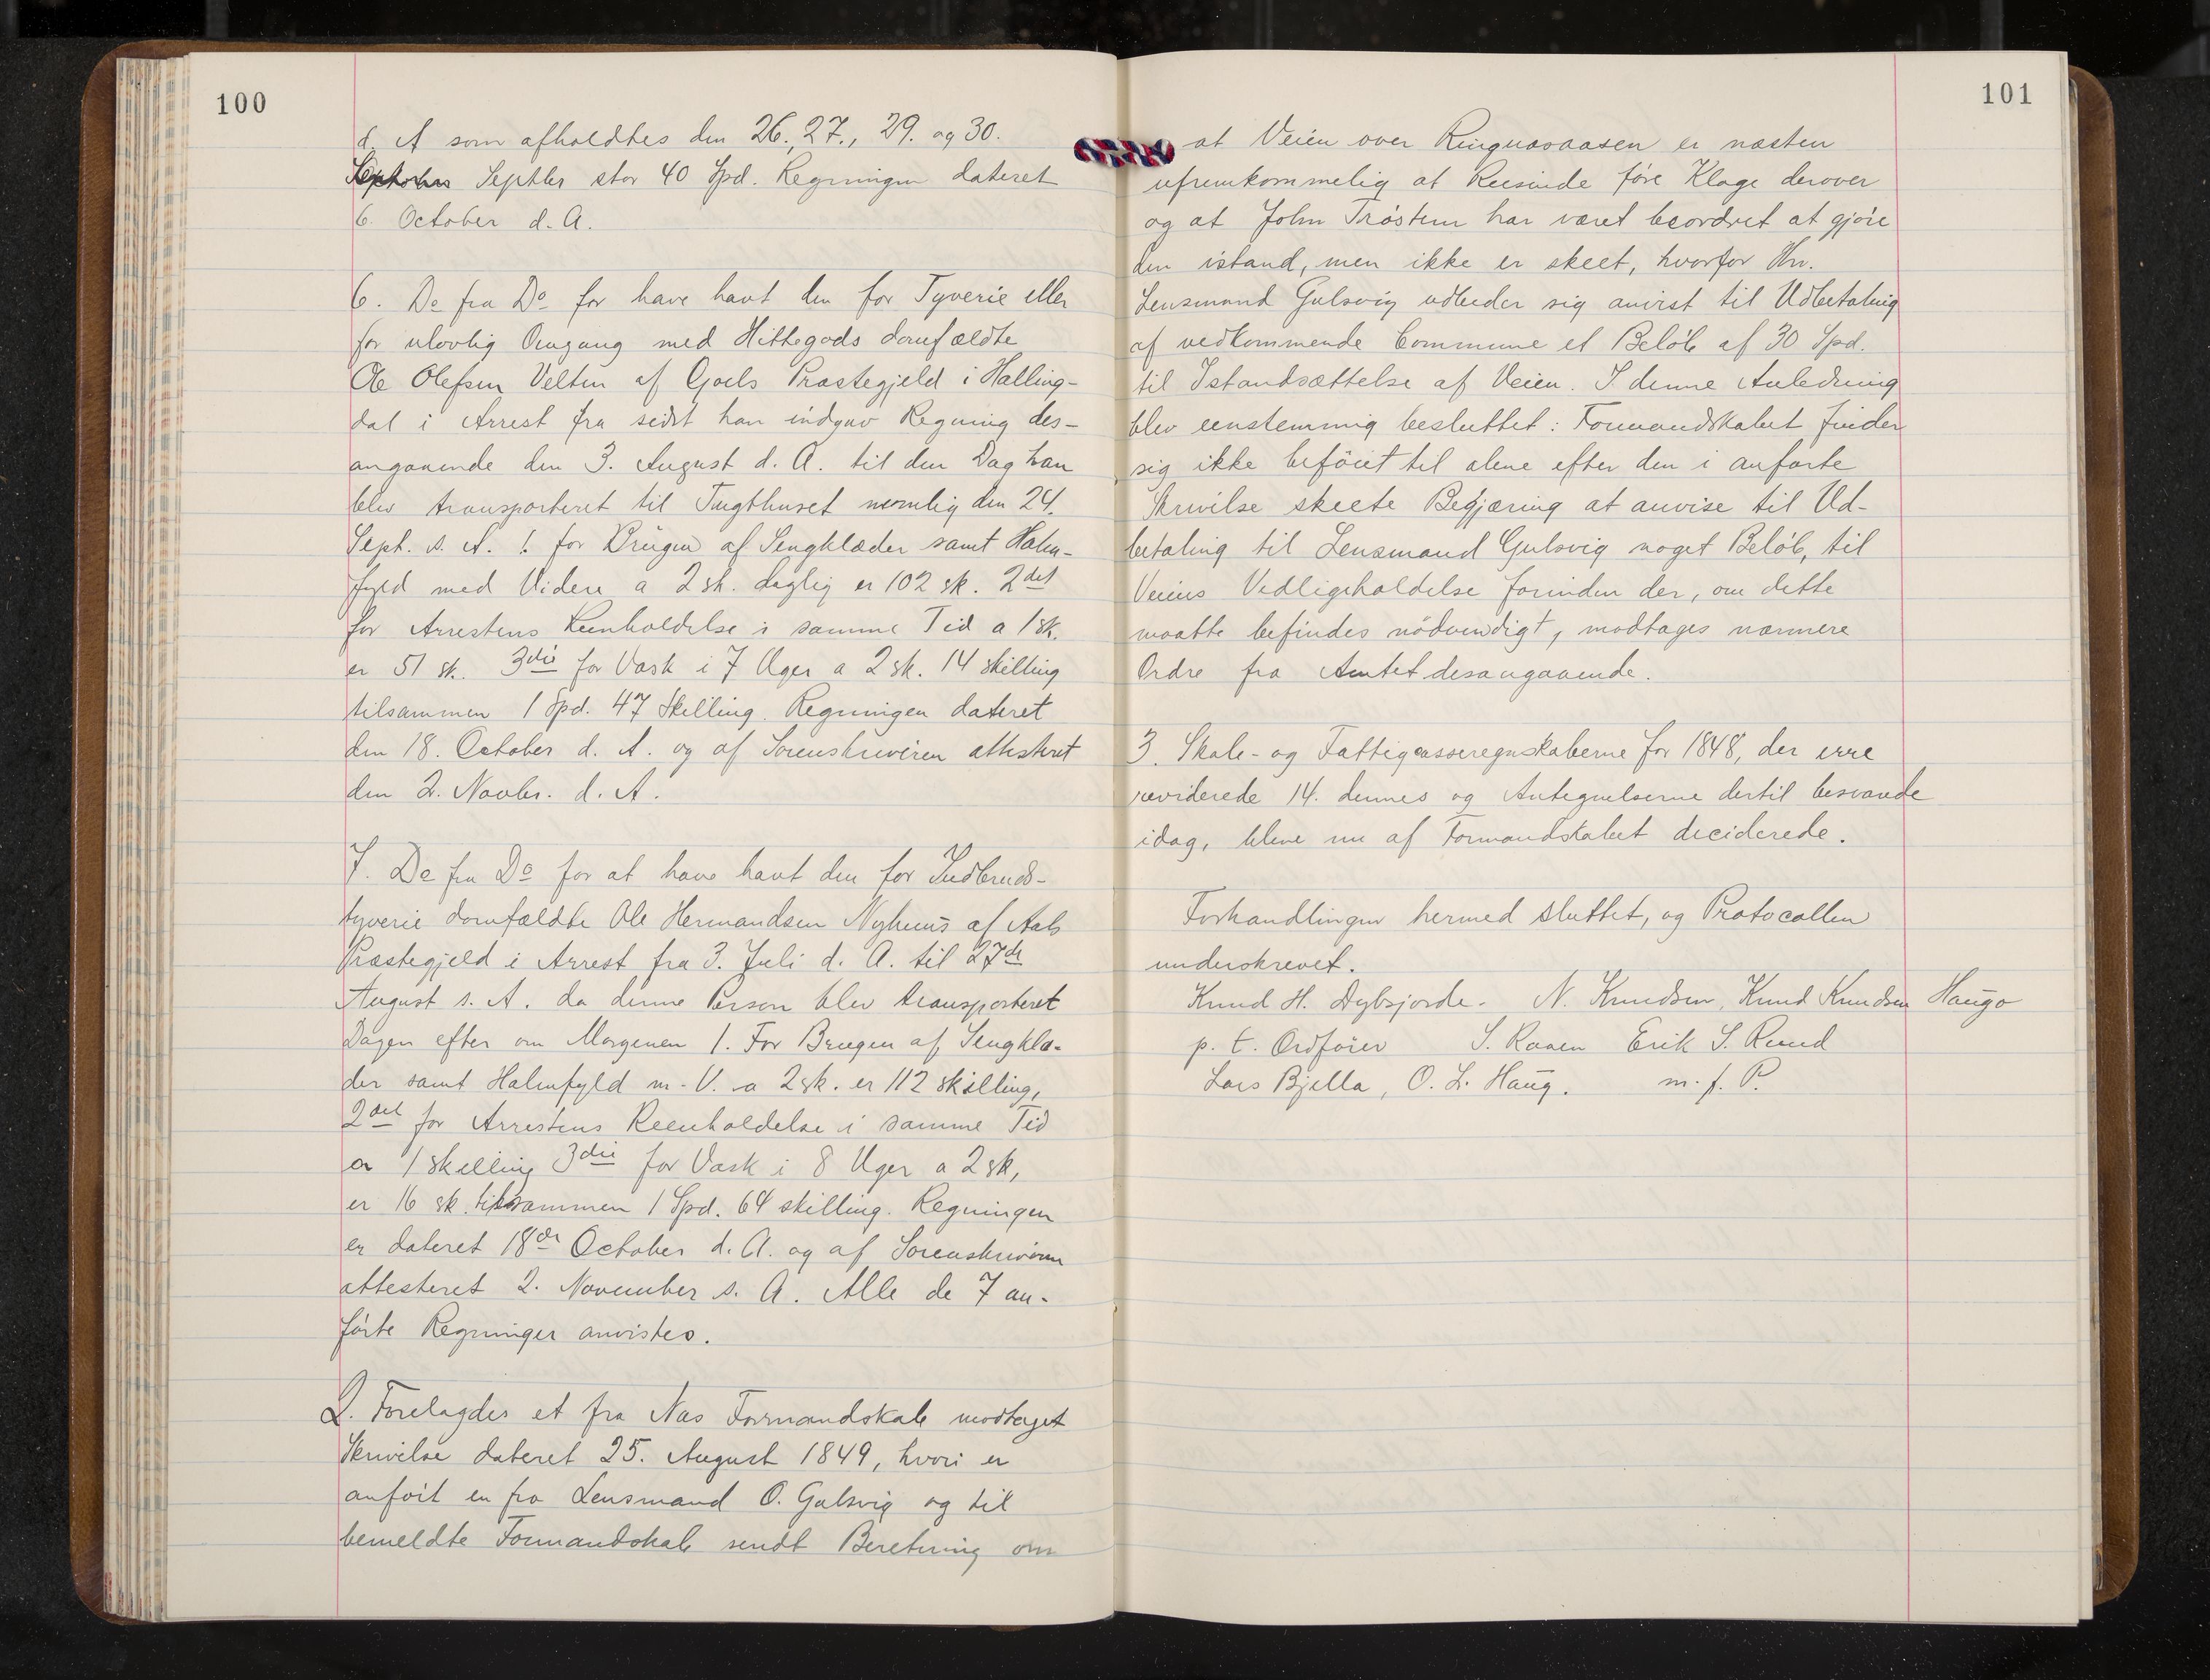 100
d. A som afholdtes den 26., 27., 29. og 30.
Septbr stor 40 Spd. Regningen dateret
6. October d. A.
6. De fra Do for have havt den for Tyverie eller
for ulovlig Omgang med Hittegods domfældte
Ole Olefsen Velten af Goels Præstegjeld i Halling-
dal i Arrest fra sidst han indgav Regning des-
angaaende den 3. August d. A. til den Dag han
blev transporteret til Tugthuset nemlig den 24.
Sept. s. A. 1. for Brugen af Sengklæder samt Halm-
fyld med Videre a 2 sk. daglig er 102 sk. 2det
for Arrestens Reenholdelse i samme Tid a 1 sk.
er 51 sk. 3die for Vask i 7 Uger a 2 sk. 14 skilling
tilsammen 1 Spd. 47 Skilling. Regningen dateret
den 18. October d. A. og af Sorenskriveren attesteret
den 2. Novbr. d. A.
7. De fra Do for at have havt den for Indbruds-
tyverie domfældte Ole Hermandsen Nyhuus af Aals
Præstegjeld i Arrest fra 3. Juli d. A. til 27de
August s. A. da denne Person blev transporteret
Dagen efter om Morgenen 1. For Brugen af Sengklæ-
der samt Halmfyld m. V. a 2 sk. er 112 skilling,
2det for Arrestens Reenholdelse i samme Tid
a 1 skilling 3die for Vask i 8 Uger a 2 sk,
er 16 sk. tilsammen 1 Spd. 64 skilling. Regningen
er dateret 18de October d. A. og af Sorenskriveren
attesteret 2. November s. A. Alle de 7 an-
førte Regninger anvistes.
2. Forelagdes et fra Næs Formandskab modtaget
Skrivelse dateret 25. August 1849, hvori er
anført en fra Lensmand O. Gulsvig og til
bemeldte Formandskab sendt Beretning om
101
at Veien over Ringnæsaasen er næsten
ufremkommelig at Reisende føre Klage derover
og at John Trøstem har været beordret at gjøre
den istand, men ikke er skeet, hvorfor Hr.
Lensmand Gulsvig udbeder sig anvist til Udbetaling
af vedkommende Commune et Beløb af 30 Spd.
til Istandsættelse af Veien. I denne Anledning
blev eenstemmig besluttet: Formandskabet finder
sig ikke beføiet til alene efter den i anførte
Skrivelse skeete Begjæring at anvise til Ud-
betaling til Lensmand Gulsvig noget Beløb, til
Veiens Vedligeholdelse forinden der, om dette
maatte befindes nødvendigt, modtages nærmere
Ordre fra Amtet desangaaende.
3. Skole- og Fattigcasseregnskaberne for 1848, der ere
reviderede 14. dennes og Antegnelserne dertil besvarede
idag, bleve nu af Formandskabet deciderede.
Forhandlingen hermed sluttet, og Protocollen
underskrevet.
Knud H. Dybsjorde. N. Knudsen, Knud Knudsen Haugo
p. t. Ordfører S. Raaen Erik S. Ruud
Lars Bjella, O. L. Haug. m. f. P.